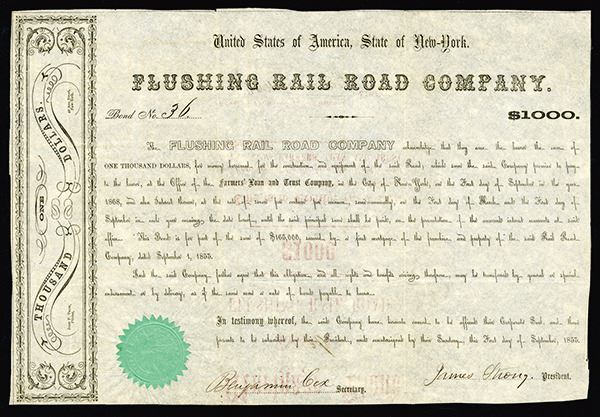 United States of America, State of New-York.
FLUSHING RAIL ROAD COMPANY.
Bond No. 36
$1000.
The FLUSHING RAIL ROAD COMPANY acknowledge that they owe the bearer the sum of
ONE THOUSAND DOLLARS, for money borrowed for the construction and equipment of the said Road; which sum the said Company promise to pay
to the bearer, at the Office of the Farmers' Loan and Trust Company, in the City of New-York, on the First day of September in the year
1868, and also interest thereon, at the rate of seven per centum per annum, semi-annually, on the First day of March and the First day of
September in each year ensuing the date hereof, until the said principal sum shall be paid, on the presentation of the annexed interest warrants at said
office. This Bond is for part of the sum of $165,000, secured by a first mortgage of the franchise and property of the said Rail Road
Company, dated September 1, 1853.
And the said Company further agree that this obligation, and all rights and benefits arising therefrom, may be transferred by general or special
endorsement or by delivery, as if the same were a note of hand payable to bearer.
In testimony whereof, the said Company have hereunto caused to be affixed their Corporate Seal, and these
presents to be subscribed by their President, and countersigned by their Secretary, this First day of September, 1853.
Benjamin Cox
Secretary.
James Strong
President.
ONE
THOUSAND
DOLLARS.